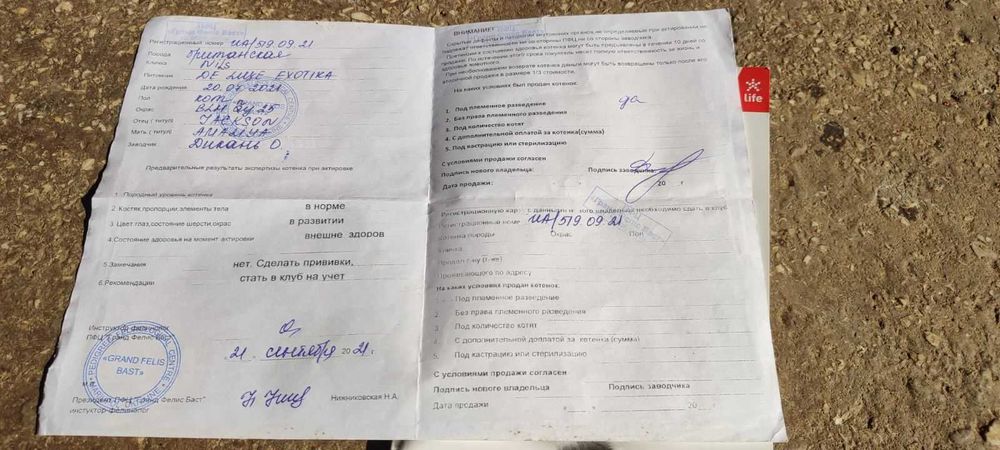 Регистрационный номер UA/519.09.21
Порода Британская
Кличка NILS
Питомник DE LUXE EXOTIKA
Дата рождения 20.07.2021
Пол кот
Окрас
Отец ( титул) JACKSON
Мать ( титул)
Заводчик Дикань О.
Предварительные результаты экспертизы котенка при актировке
1. Породный уровень котенка
2. Костяк,пропорции,элементы тела в норме
3. Цвет,глаз,состояние шерсти,окрас в развитии
4.Состояние здоровья на момент актировки внешне здоров
5.Замечания нет. Сделать прививки,
6.Рекомендации стать в клуб на учет
Инструктор фелинолог
ПФЦ "Гранд Фелис Баст"
21 сентября 2021г.
PEDIGREE CENTRE
«GRAND FELIS
BAST»
М.П.
Президент ПФЦ "Гранд Фелис Баст" Нижниковская Н.А.
инструктор-фелинолог
ВНИМАНИЕ!
Скрытые дефекты и патологии внутренних органов,не определяемые при актировании не
подлежат компенсации ни со стороны ПФЦ,ни со стороны заводчика.
Претензии к состоянию здоровья котенка могут быть предъявлены в течении 10 дней со
продажи. По истечению этого срока покупатель несет полную ответственность за жизнь и
здоровье животного.
При необоснованном возврате котенка деньги могут быть возвращены только после его
вторичной продажи в размере 1/3 стоимости.
На каких условиях был продан котенок:
1. Под племенное разведение да
2. Без права племенного разведения
3. Под количество котят
4. С дополнительной оплатой за котенка(сумма)
5. Под кастрацию или стерилизацию
С условиями продажи согласен
Подпись нового владельца: Подпись заводчика
Дата продажи: 20 г
Регистрационную карту с данными нового владельца необходимо сдать в клуб
Регистрационный номер UA/519.09.21
Котенка породы Окрас Пол
Кличка
Продал г-ну (г-же)
Проживающего по адресу
На каких условиях продан котенок:
1. Под племенное разведение
2. Без права племенного разведения
3. Под количество котят
4. С дополнительной доплатой за котенка(сумма)
5. Под кастрацию или стерилизацию
С условиями продажи согласен
Подпись нового владельца Подпись заводчика
Дата продажи 20 г
life